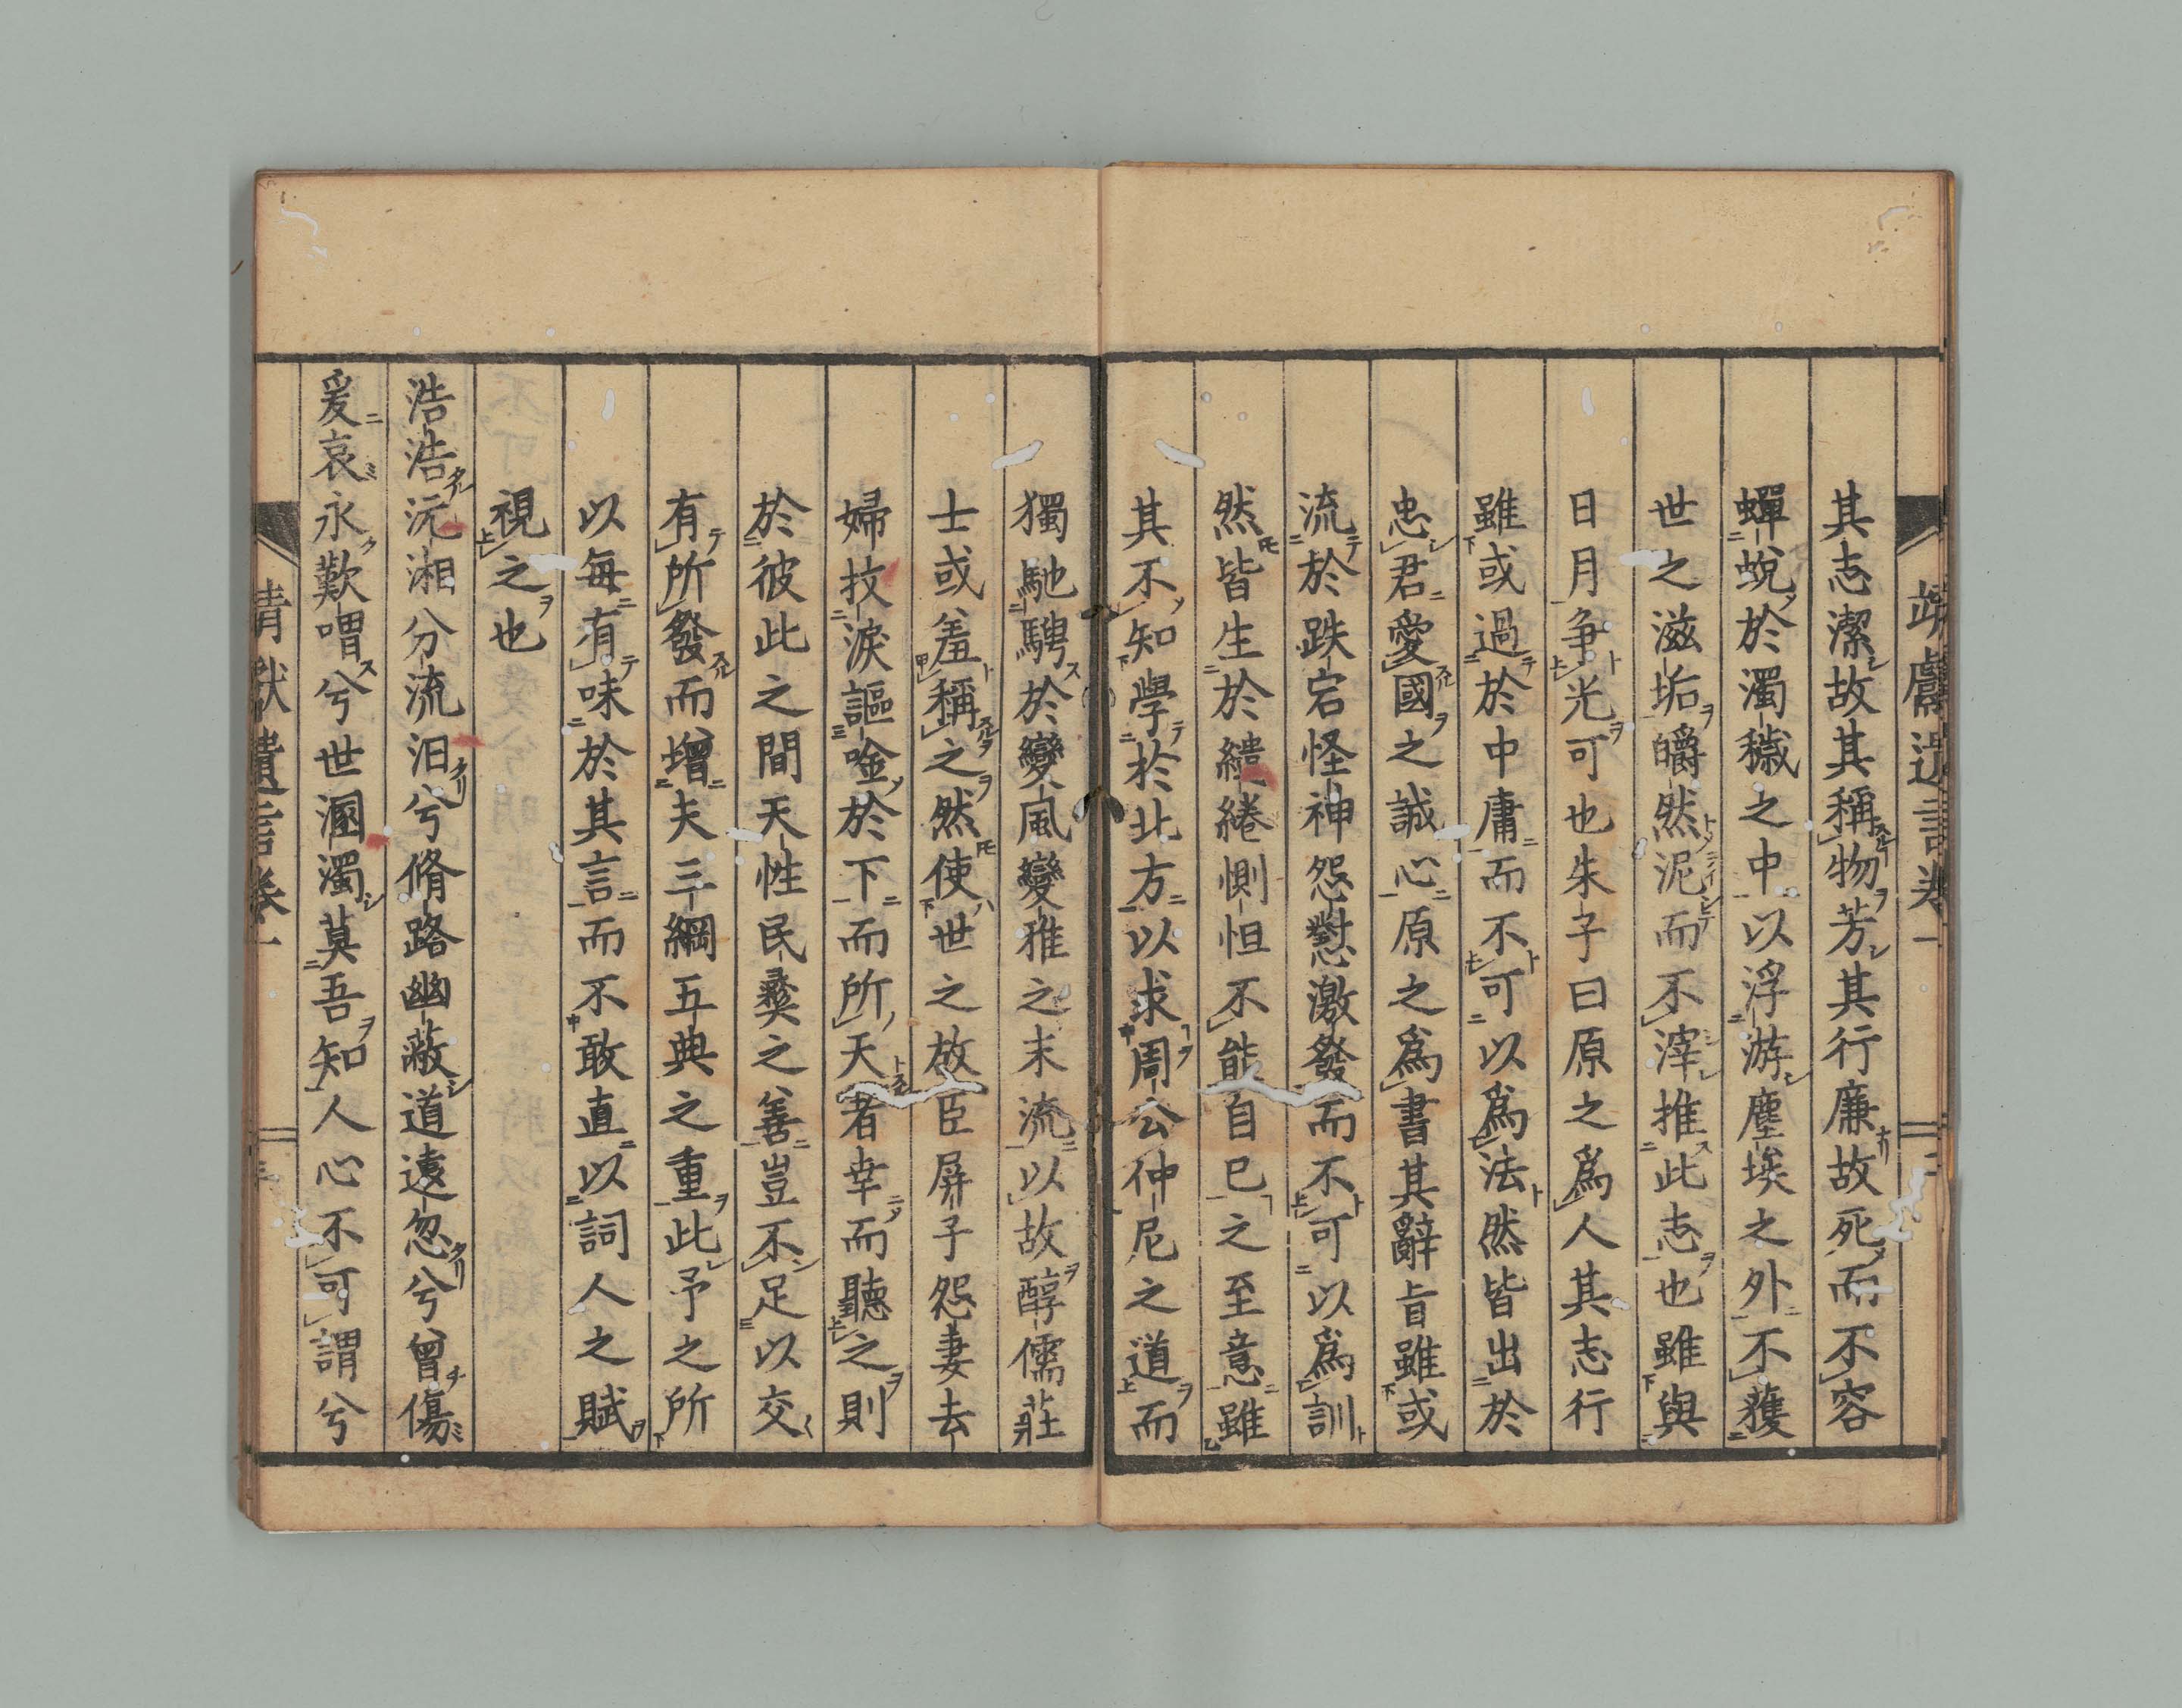 其志潔故其稱物芳其行廉故死而不容
蟬蛻於濁穢之中以浮游塵埃之外不獲
世之滋垢皭然泥而不滓推此志也雖與
日月争光可也朱子曰原之爲人其志行
雖或過於中庸而不可以爲法然皆出於
忠君愛國之誠心原之爲書其辭旨雖或
流於跌宕怪神怨懟激發而不可以爲訓
然皆生於繾綣惻怛不能自已之至意雖
其不知學於北方以求周公仲尼之道而
獨馳騁於變風變雅之末流以故醇儒莊
士或羞稱之然使世之放臣屏子怨妻去
婦抆淚謳唫於下而所天者幸而聽之則
於彼此之間天性民彝之善豈不足以交
有所發而增夫三綱五典之重此予之所
以每有味於其言而不敢直以詞人之賦
視之也
浩浩沅湘分流汨兮脩路幽蔽道遠忽兮曾傷
爰哀永歎喟兮世溷濁莫吾知人心不可謂兮
靖獻遺言卷一